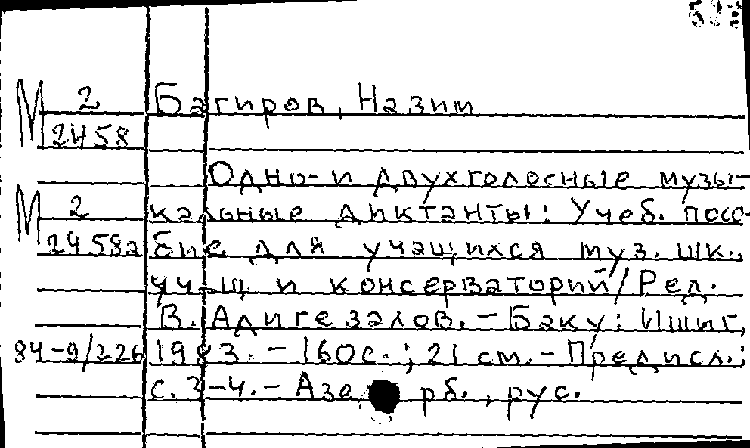 М 2
2458
Багиров, Назим
Одно- и двухголосные музы-
М 2
2458а
кальные диктанты: Учеб. посо-
бие для учащихся муз. шк.,
уч-щ и консерваторий/Ред.
В. Адигезалов. - Баку: Ишиг,
84-9/226
1983. - 160с.; 21 см. - Предисл.:
с. 3-4. - Азе рб., рус.